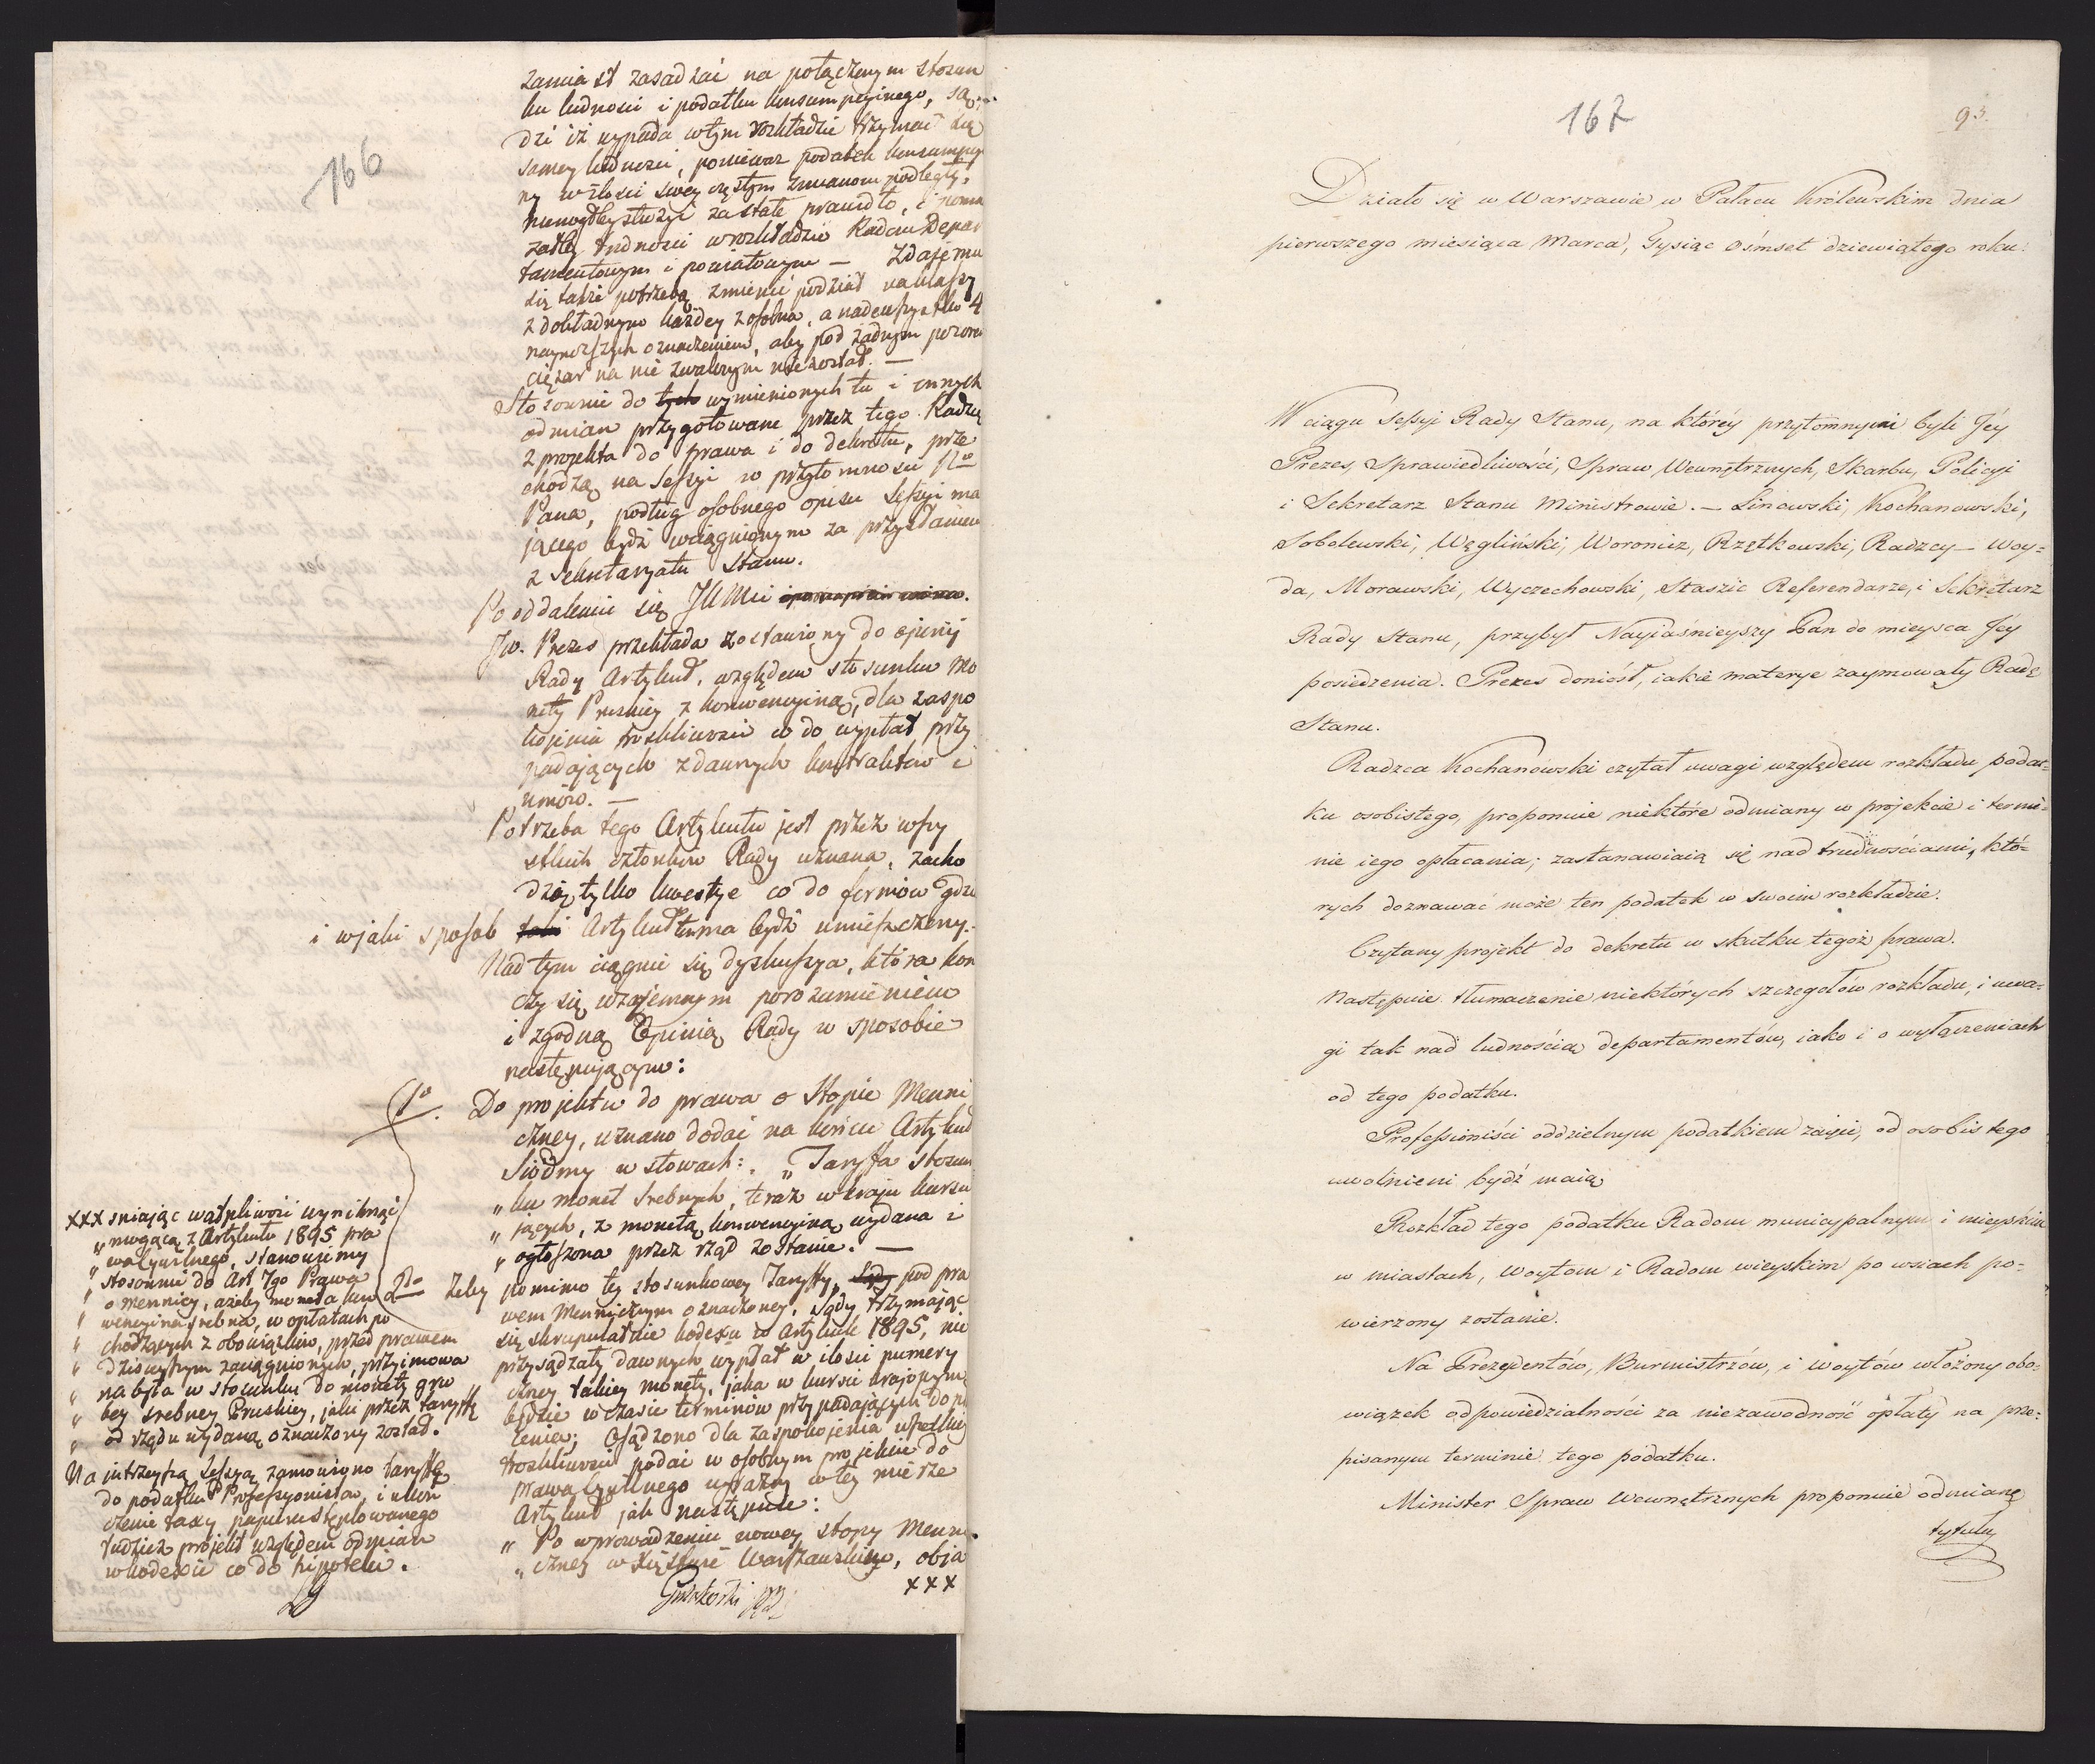 166
zamiast zasadzać na połączonym stosun
ku ludności i podatku konsumpcyinego, są
dzi iż wypada w tym rozkładzie trzymać się
samey ludności, ponieważ podatek konsumpcyi
ny w ilości swey częstym zmianom podległy,
niemógłby służyć za stałe prawidło, i
trudności w rozkładzie Radom Depar
tamentowym i powiatowym — Zdaje mu
się także potrzebą zmienić podział na klassy
z dokładnym każdey z osobna, a nadewszystko 4
naywyższych oznaczeniem, aby pod żadnym pozorem
ciężar na nie zwalonym nie został. —
Stosownie do tych wymienionych tu i innych
odmian przygotowane przez tego Radzcę
2 projekta do prawa i do dekretu, prze
chodzą na Sessyi w przytomności Nº
Pana, podług osobnego opisu Sessyi ma
jącego bydź wciągnionym za przydaniem
z Sekretaryatu Stanu.
Po oddaleniu się JKMci
JW. Prezes przekłada zostawiony do opinii
Rady Artykuł, względem stosunku mo
nety Pruskiey z konwencyiną, dla zaspo
kojenia troskliwości co do wypłat przy
padających z dawnych kontraktów i
umów. —
Potrzeba tego Artykułu jest przez wszy
stkich członków Rady uznana, zacho
dzą tylko kwestye co do termów gdzie
i w jaki sposób taki Artykuł ten ma bydź umieszczony.
Nad tym ciągnie się dyskussya, która koń
czy się wzajemnym porozumieniem
i zgodną Opinią Rady w sposobie
następującym:
1º Do projektu do prawa o Stopie Menni
czney, uznano dodać na końcu Artykuł
Siódmy w słowach: „Taryffa stosun
„ku monet srebrnych, teraz w kraju kursu
„jących, z monetą konwencyiną wydana i
„ogłoszona przez rząd zostanie. —
2º Żeby pomimo tey stosunkowey Taryffy, Sądy pod pra
wem Menniczym oznaczoney, Sądy trzymając
się skrupulatnie kodexu w Artykule 1895, nie
przysądzały dawnych wypłat w ilości numery
czney takiey monety, jaka w kursie krajowym
będzie w czasie terminów przypadających do pł
cenia; Osądzono dla zaspokojenia wszelkiey
troskliwości podać w osobnym projekcie do
prawa Cywilnego wyrażony w tey mierze
Artykuł jak następuie:
„Po wprowadzeniu nowey stopy Menni
„czney w Xięstwie Warszawskim, obja
xxx
xxx śniając wątpliwość wyniknąć
„mogącą z Artykułu 1895 pra
„wa Cywilnego, stanowimy
„stosownie do Art 7go Prawa
„o mennicy, ażeby moneta kon
„wencyina srebrna, w opłatach po
„chodzących z obowiązków, przed prawem
„dzisieyszym zaciągnionych, przyimowa
„na była w stosunku do monety gru
„bey srebrney Pruskiey, jaki przez taryffę
„od rządu wydaną oznaczony został.
Na jutrzeyszą Sessyą zamówiono taryffę
do podatku Professyonistów, i ukoń
czenie taxy papieru stęplowanego
tudzież projekt względem odmian
w kodexie co do hipotek.
167
93.
Działo się w Warszawie w Pałacu Królewskim dnia
pierwszego miesiąca Marca, Tysiąc Ośmset dziewiątego roku.
W ciągu Sessyi Rady Stanu, na którey przytomnymi byli Jéy
Prezes, Sprawiedliwości, Spraw Wewnętrznych, Skarbu, Policyi
i Sekretarz Stanu Ministrowie. — Linowski, Kochanowski,
Sobolewski, Węgliński, Woronicz, Rzętkowski, Radzcy — Woy=
da, Morawski, Wyczechowski, Staszic Referendarze, i Sekretarz
Rady Stanu, przybył Nayiaśnieyszy Pan do mieysca Jéy
posiedzenia. Prezes doniósł, iakie materye zaymowały Radę
Stanu.
Radzca Kochanowski czytał uwagi względem rozkładu podat=
ku osobistego, proponuie niektóre odmiany w projekcie i termi=
nie iego opłacania; zastanawiaią się nad trudnościami, któ=
rych doznawać może ten podatek w swoim rozkładzie.
Czytany projekt do dekretu w skutku tegoż prawa.
Następuie tłumaczenie niektórych szczegółów rozkładu, i uwa=
gi tak nad ludnością departamentów, iako i o wyłączeniach
od tego podatku.
Professioniści oddzielnym podatkiem zaięci, od osobistego
uwolnieni bydź maią
Rozkład tego podatku Radom municypalnym i mieyskim
w miastach, Woytom i Radom wieyskim po wsiach po=
wierzony zostanie.
Na Prezydentów, Burmistrzów, i Woytów włożony obo=
wiązek odpowiedzialności za niezawodność opłaty na prze=
pisanym terminie tego podatku.
Minister Spraw Wewnętrznych proponuie odmianę
tytułu